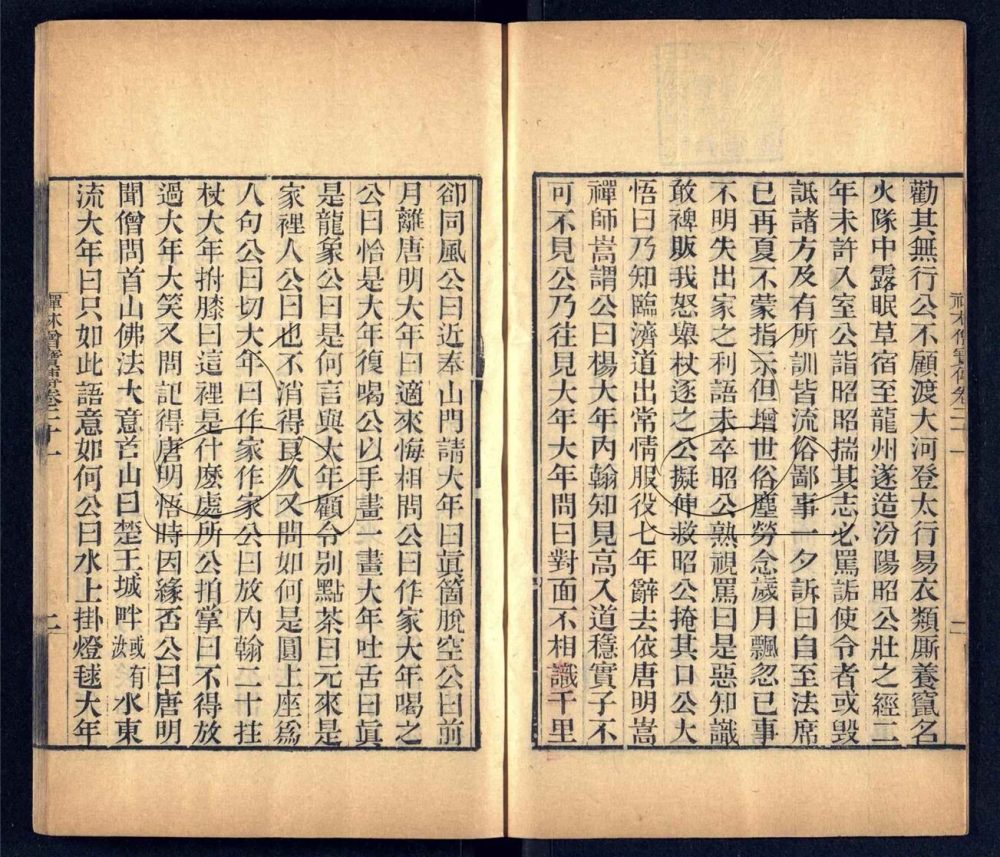 勸其無行公不顧渡大河登太行易衣類厮養竄名
火隊中露眠草宿至龍州遂造汾陽昭公壯之經二
年未許入室公詣昭昭揣其志必罵詬使令者或毀
詆諸方及有所訓皆流俗鄙事一夕訴曰自至法席
已再夏不蒙指示但增世俗塵勞念歲月飄忽己事
不明失出家之利語未卒昭公熟視罵曰是惡知識
敢裨販我怒舉杖逐之公擬伸救昭公掩其口公大
悟曰乃知臨濟道出常情服役七年辭去依唐明嵩
禪師嵩謂公曰楊大年內翰知見高入道穩實子不
可不見公乃往見大年大年問曰對面不相識千里
卻同風公曰近奉山門請大年曰眞箇脫空公曰前
月離唐明大年曰適來悔相問公曰作家大年喝之
公曰恰是大年復喝公以手畫一畫大年吐舌曰眞
是龍象公曰是何言與大年顧令别點茶曰元來是
家裡人公曰也不消得良久又問如何是圓上座爲
人句公曰切大年曰作家作家公曰放內翰二十拄
杖大年拊膝曰這裡是什麽處所公拍掌曰不得放
過大年大笑又問記得唐明悟時因緣否公曰唐明
聞僧問首山佛法大意首山曰楚王城畔或有汝水東
流大年曰只如此語意如何公曰水上掛燈毬大年
禪林僧寶傳卷二十一
二